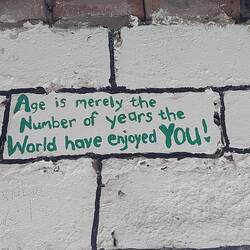 Age is merely the
Number of years the
World have enjoyed YOU!